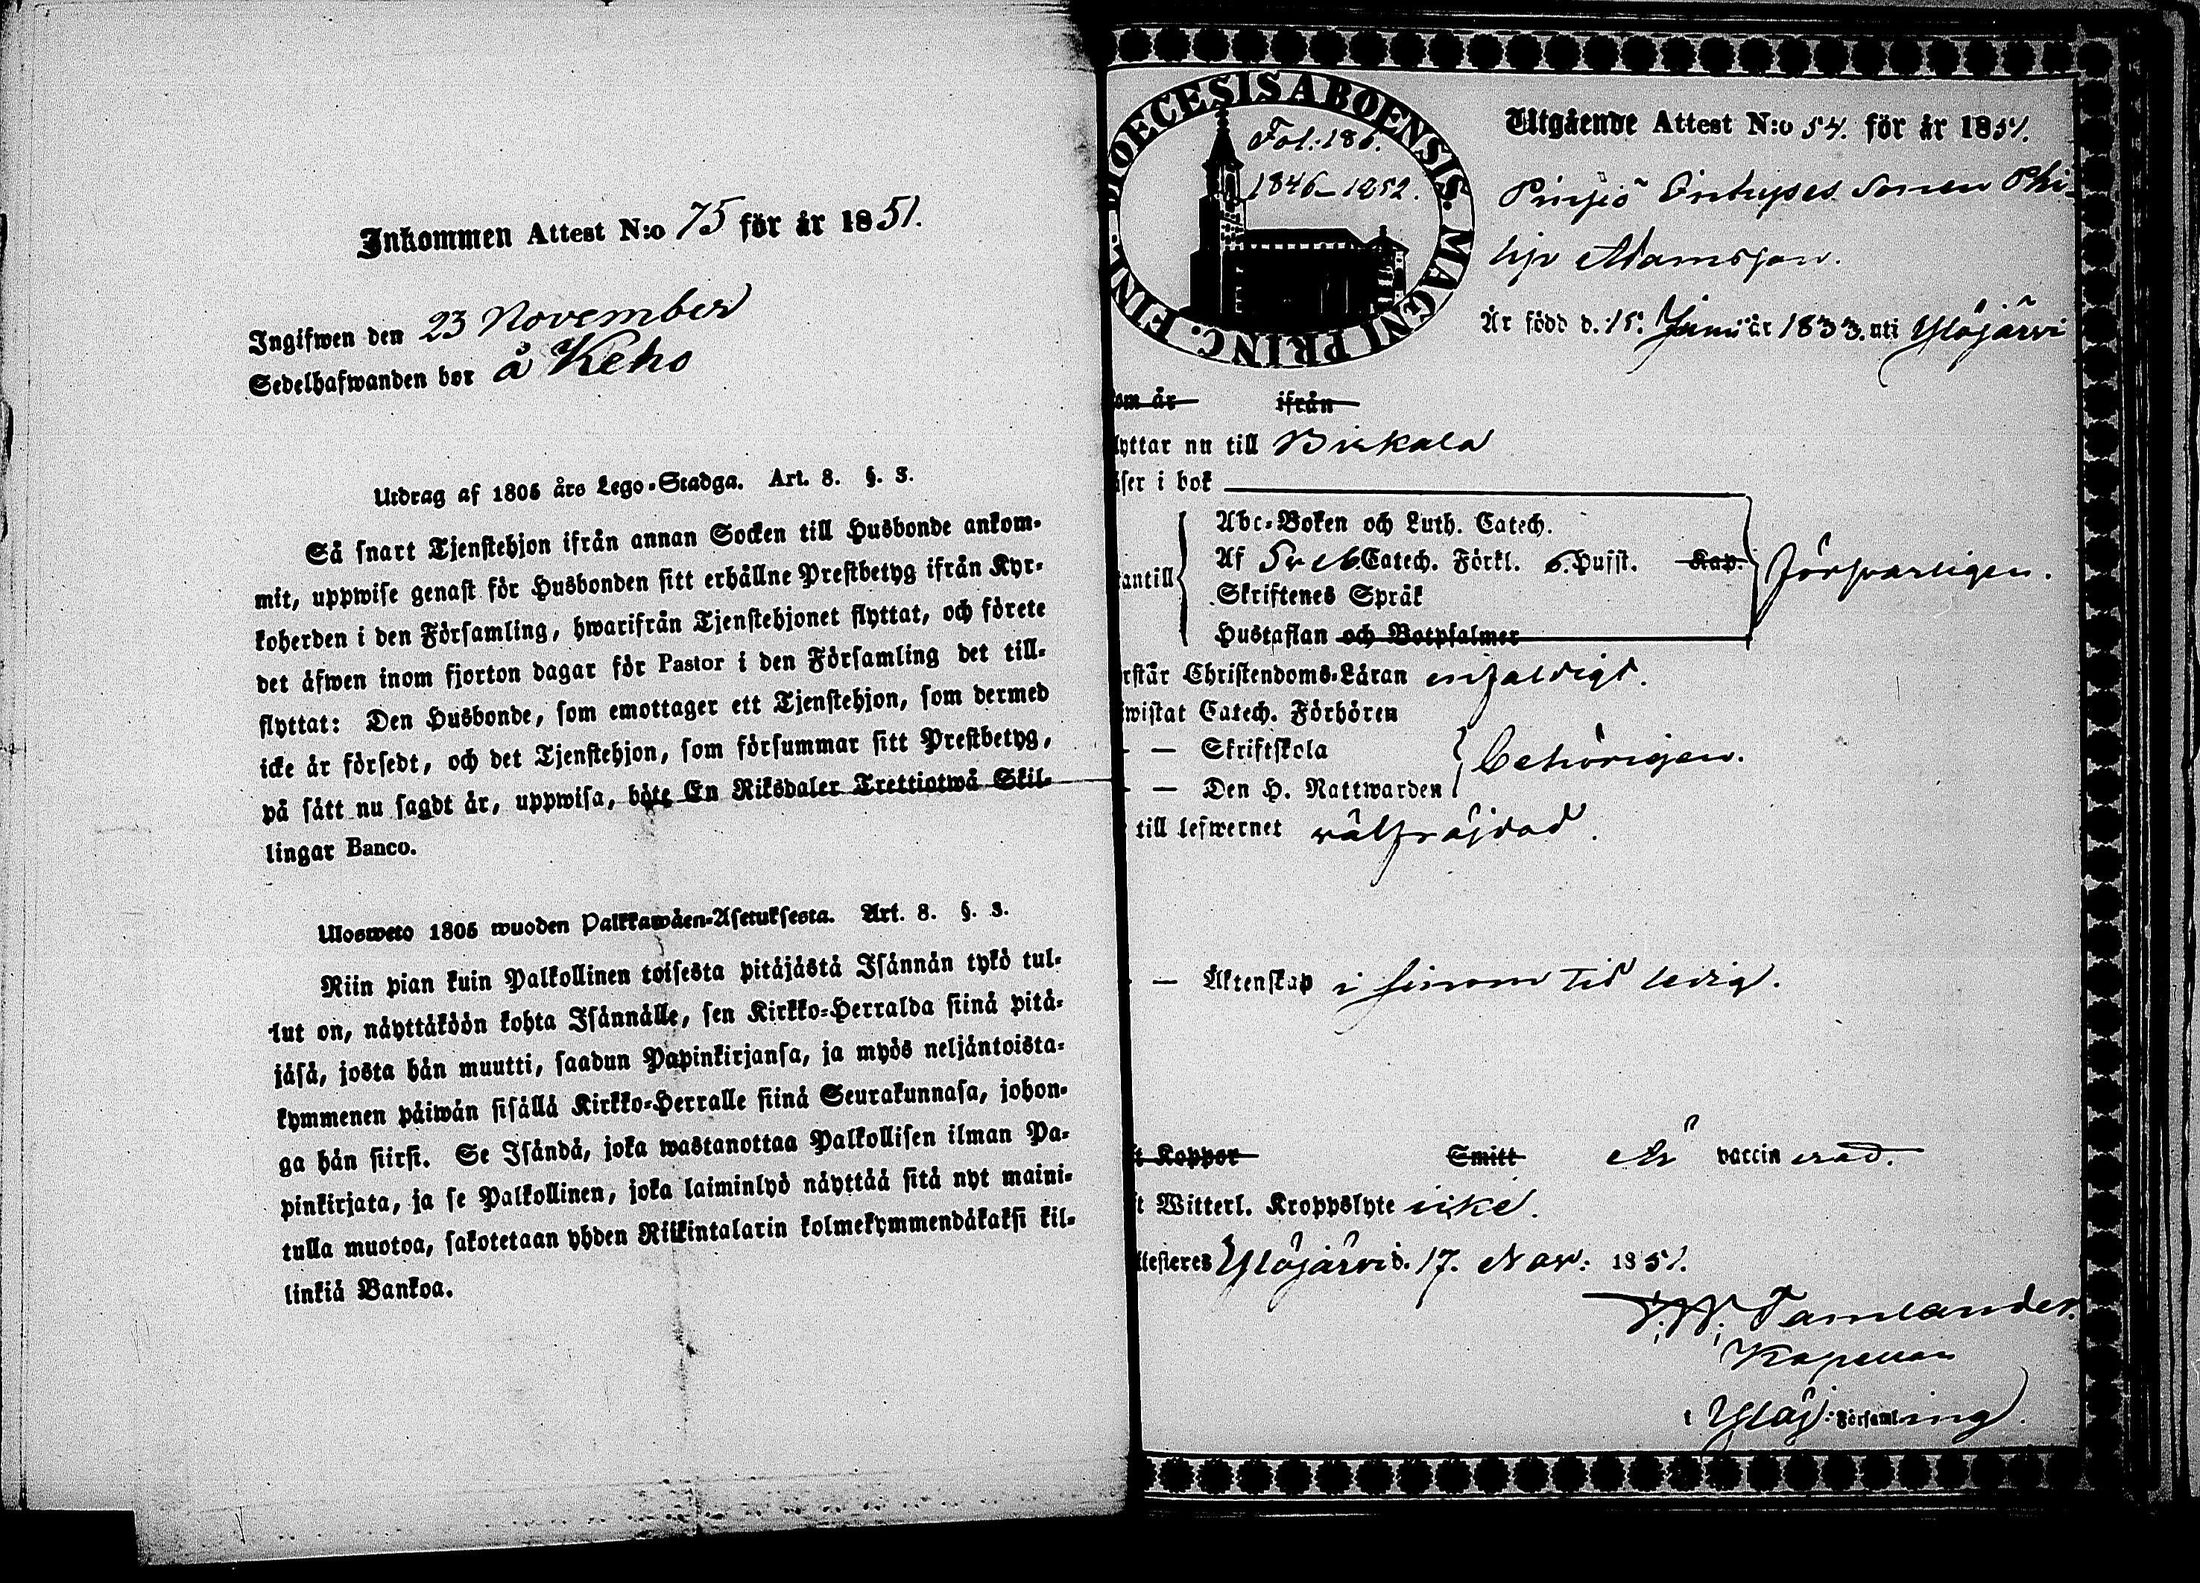 Inkommen Attest N:o 75 för år 1851.
Ingifwen den 23 November
Sedelhafwanden bor å Keho
Utdrag af 1805 års Lego-Stadga. Art. 8. §. 3.
Så snart Tjenstehjon ifrån annan Socken till Husbonde ankom-
mit, uppwise genast för Husbonden sitt erhållne Prestbetyg ifrån Kyr-
koherden i den Församling, hwarifrån Tjenstehjonet flyttat, och förete
det äfwen inom fjorton dagar för Pastor i den Församling det till-
flyttat: Den Husbonde, som emottager ett Tjenstehjon, som dermed
icke är försedt, och det Tjenstehjon, som försummar sitt Prestbetyg,
på sätt nu sagdt är, uppwisa, böte En Riksdaler Trettiotwå Skil-
lingar Banco.
Ulosweto 1805 wuoden Palkkawäen-Asetuksesta. Art. 8. §. 3.
Niin pian kuin Palkollinen toisesta pitäjästä Isännän tykö tul-
lut on, näyttäköön kohta Isännälle, sen Kirkko-Herralda siinä pitä-
jäsä, josta hän muutti, saadun Papinkirjansa, ja myös neljäntoista-
kymmenen päiwän sisällä Kirkko-Herralle siinä Seurakunnasa, johon-
ga hän siirsi. Se Isändä, joka wastanottaa Palkollisen ilman Pa-
pinkirjata, ja se Palkollinen, joka laiminlyö näyttää sitä nyt maini-
tulla muotoa, sakotetaan yhden Riikintalarin kolmekymmendäkaksi kil-
linkiä Bankoa.
DIOECESIS ABOENSIS. MAGNI PRINC. FINL.
Fol: 186.
1846-1852.
Utgående Attest N:o 54. för år 1851.
Sonen Phi-
lip Adamsson.
Är född d. 15. Juni år 1833. uti Ylöjärvi
om år ifrån
lyttar nu till Birkala
äser i bok
antill
Abc-Boken och Luth. Catech.
Af Catech. Förkl. 6. Hufst. Kap.
Skriftenes Språk
Hustaflan och Botpsalmer
försvarligen.
rstår Christendoms-Läran enfaldigt.
wistat Catech. Förhören
- - Skriftskola
- - Den H. Nattwarden
behörigen.
till lefwernet välfräjdad.
- - Äktenskap i sinom tid ledig.
t Koppor Smitt är vaccinerad.
t Witterl. Kroppslyte icke.
ttesteres Ylöjärvi d. 17. Nov: 1851.
Tamlander.
Kapellan
i Ylöj: Församling.